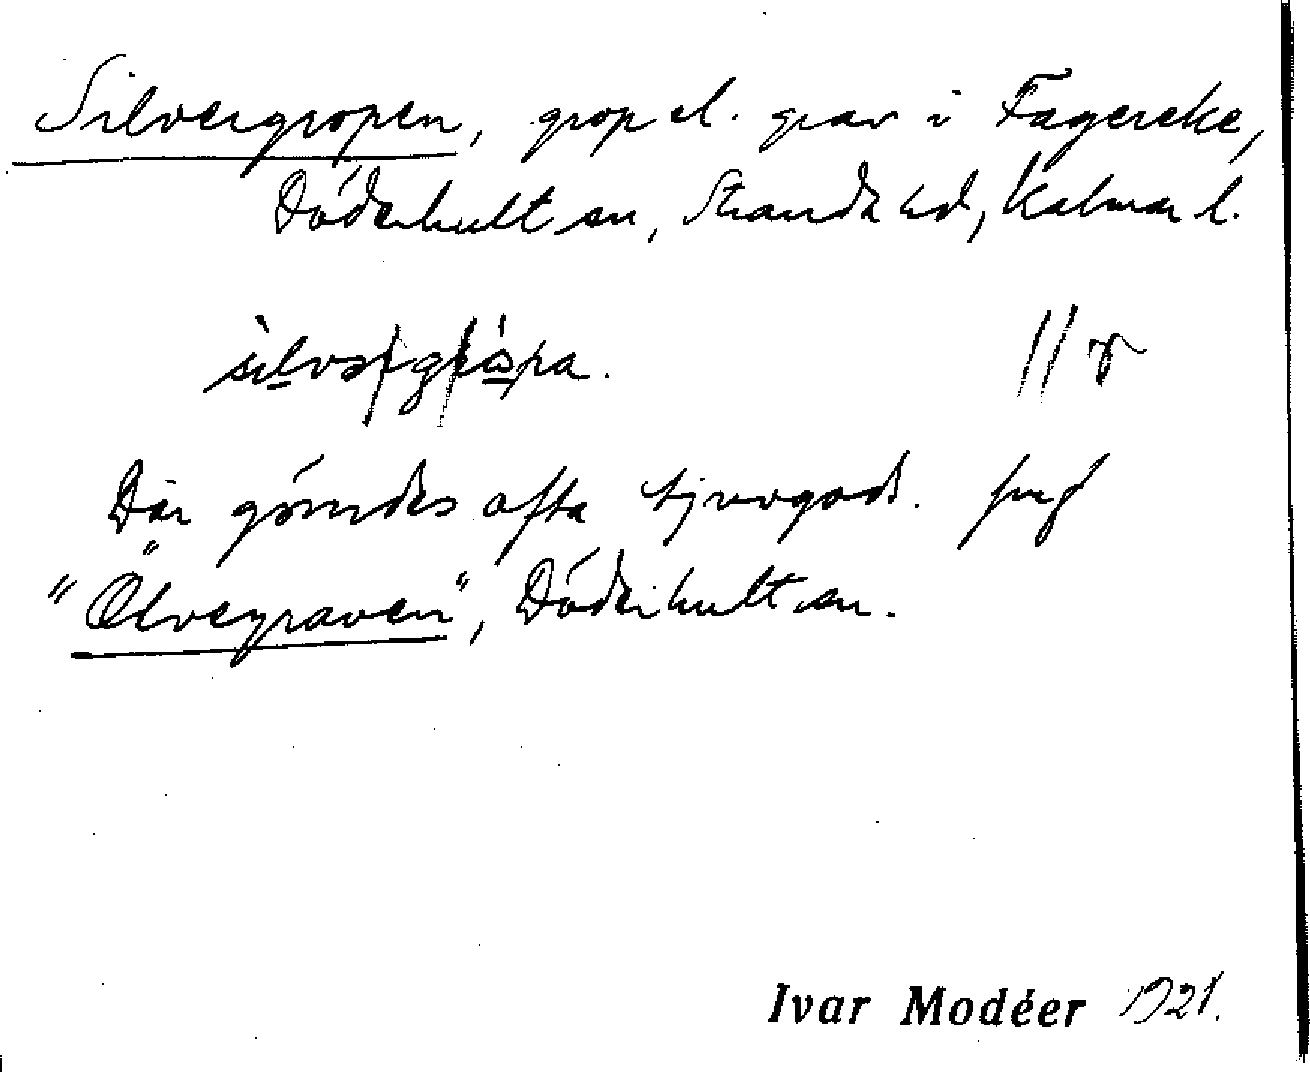 Silvergropen, grop el. grav i Fagereke,
Döderhult sn, Stranda hd, Kalmar l.
silvərgrópa. // r
Där gömdes ofta tjuvgods. jmf
"Ölvegraven", Döderhult sn.
Ivar Modéer 1921.